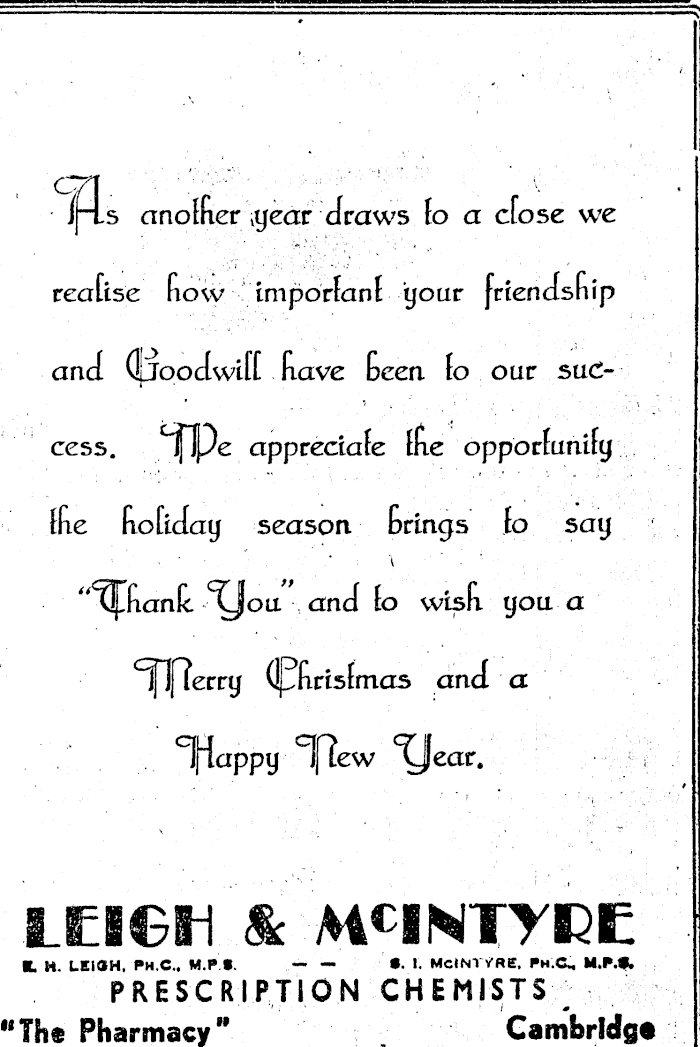 As another year draws to a close we
realise how important your friendship
and Goodwill have been to our suc-
cess. We appreciate the opportunity
the holiday season brings to say
“Thank You” and to wish you a
Merry Christmas and a
Happy New Year.
LEIGH & McINTYRE
E. H. LEIGH, PH.C., M.P.S. — — S. I. McINTYRE, PH.C., M.P.S.
PRESCRIPTION CHEMISTS
"The Pharmacy" Cambridge